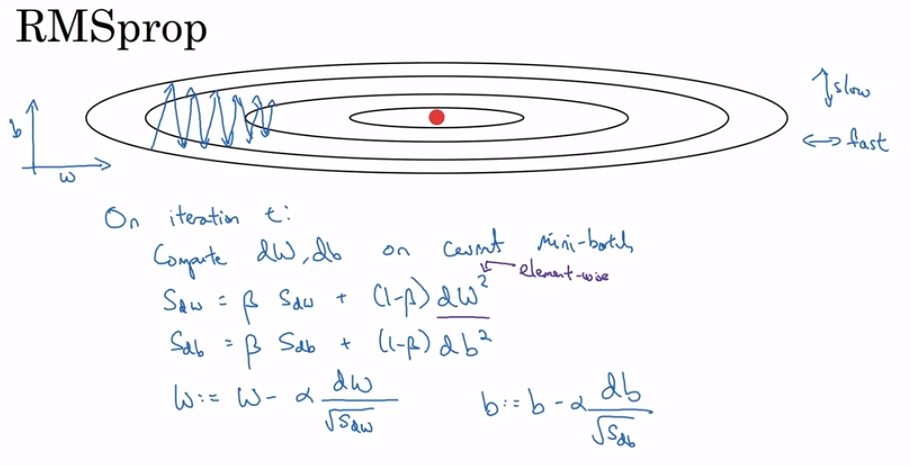 RMSprop
slow
b
fast
w
On iteration t:
Compute dW, db on current mini-batch
element-wise
S_dw = β S_dw + (1-β) dW²
S_db = β S_db + (1-β) db²
W := W - α dW/√S_dw b := b - α db/√S_db